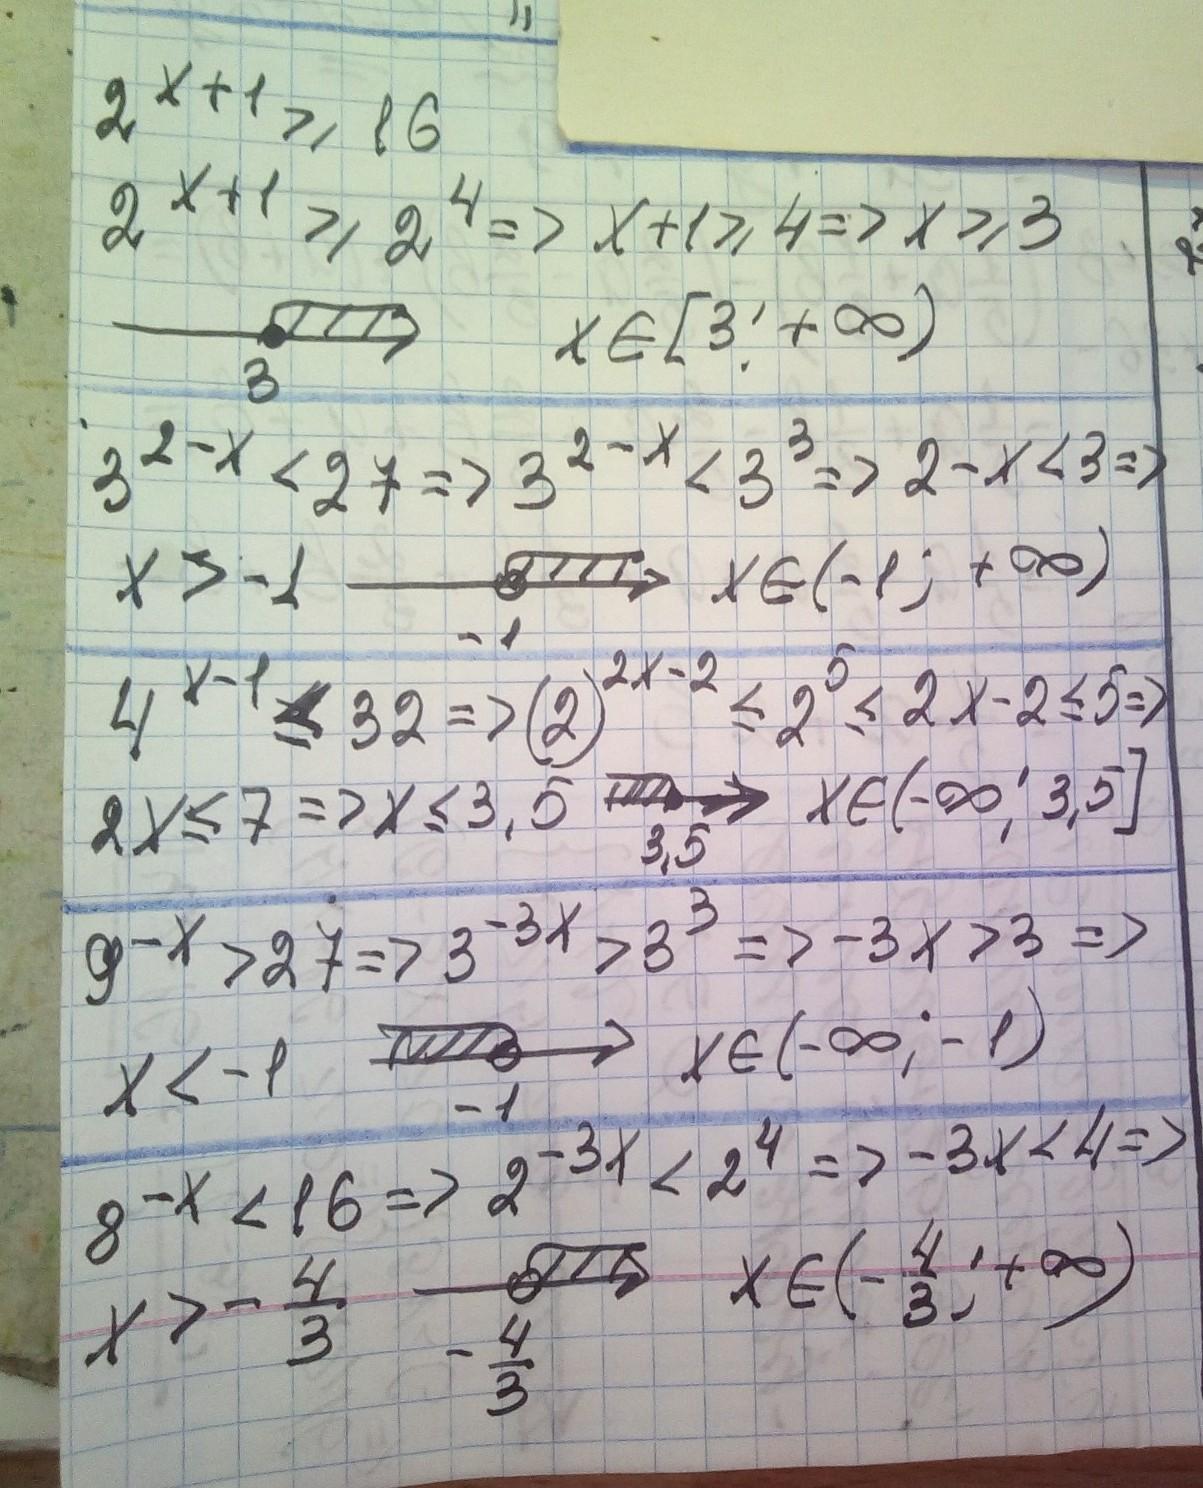 2^{x+1} ⩾ 16
2^{x+1} ⩾ 2^4 => x+1 ⩾ 4 => x ⩾ 3
3 x∈[3; +∞)
3^{2-x} < 27 => 3^{2-x} < 3^3 => 2-x < 3 =>
x > -1 -1 x∈(-1; +∞)
4^{x-1} ≤ 32 => (2)^{2x-2} ≤ 2^5 ≤ 2x-2 ≤ 5 =>
2x ≤ 7 => x ≤ 3,5 3,5 x∈(-∞; 3,5]
9^{-x} > 27 => 3^{-3x} > 3^3 => -3x > 3 =>
x < -1 -1 x∈(-∞; -1)
8^{-x} < 16 => 2^{-3x} < 2^4 => -3x < 4 =>
x > -4/3 -4/3 x∈(-4/3; +∞)